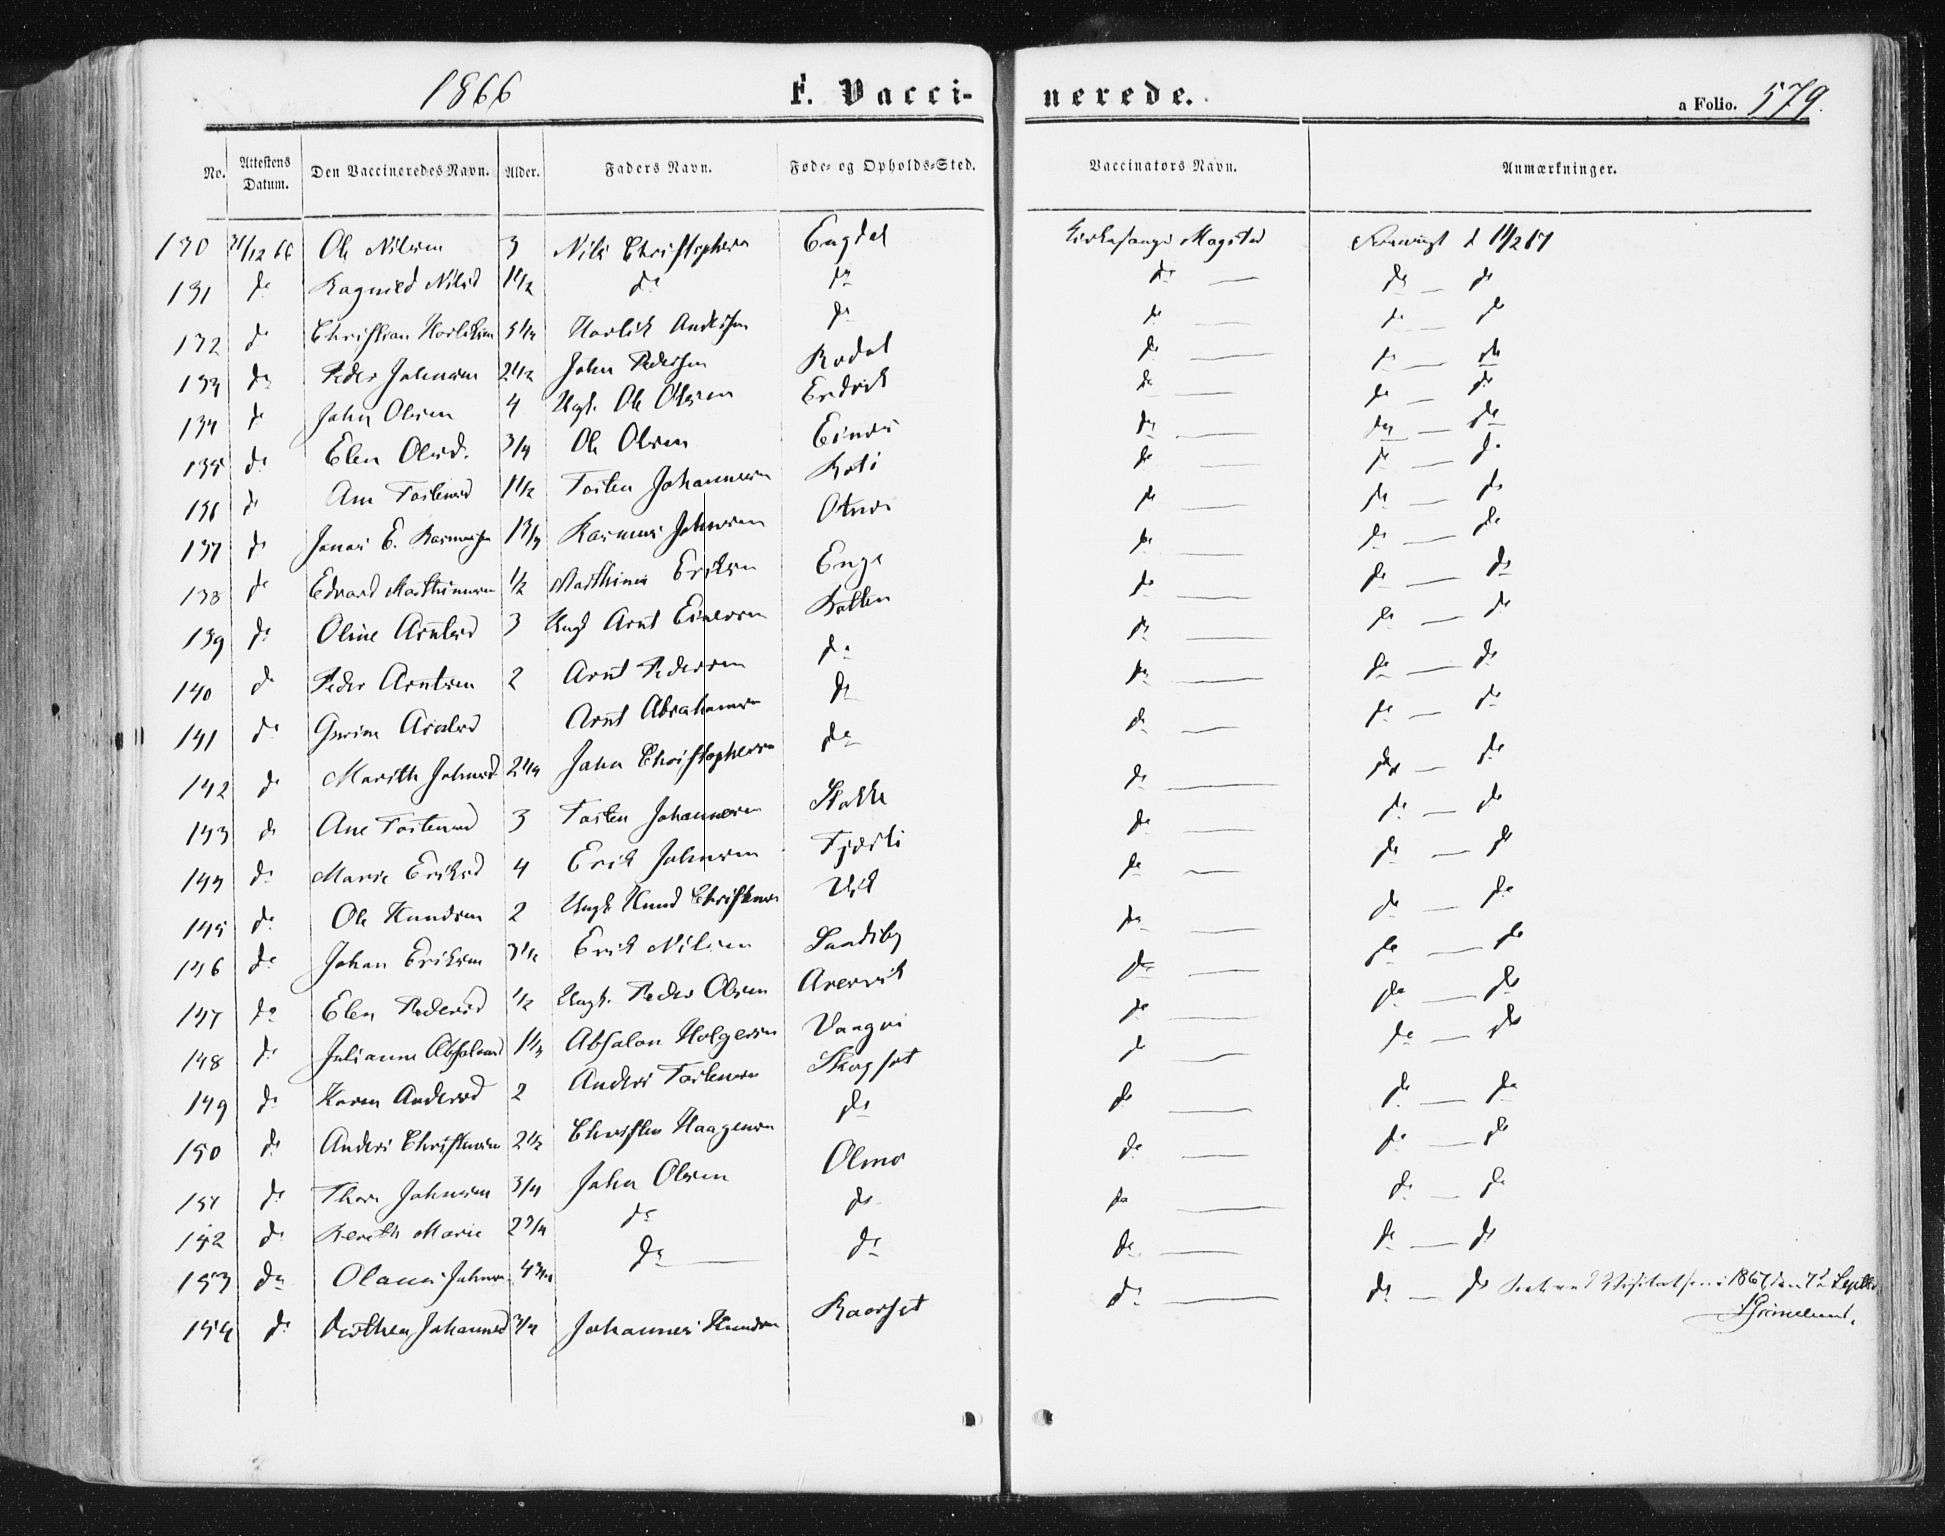 1866 F. Vacci- nerede. a Folio. 579.
No. Attestens Datum. Den Vaccineredes Navn. Alder. Faders Navn. Føde- og Opholds-Sted. Vaccinators Navn. Anmærkninger.
130 31/12 66 Ole Nilsen 3 Nils Christophersen Engdal Kirkesanger Magsted
131 do Ragnild Nilsd 1 1/2 do do do — do — do
132 do Christian 3 1/4 Andersen do do — do — do
133 do Peder Johnsen 2 1/2 John Pedersen Rodal do — do — do
134 do John Olsen 4 Ungk. Ole Olsen Endvik do — do — do
135 do Elen Olsd. 3/4 Ole Olsen do — do — do
136 do Ane Tostensd 1 1/2 Tosten Johannesen do — do — do
137 do Jonas E. Rasmussen 1 3/4 Rasmus Johnsen Otnes do — do — do
138 do Edvard Mathiassen 1/2 Eriksen Enge do — do — do
139 do Oline Arntsd 3 Ungk Arnt Einersen Botten do — do — do
140 do Peder Arntsen 2 Arnt Pedersen do do — do — do
141 do Arnt Abrahamsen do do — do — do
142 do Marith Johnsd 2 1/4 John Christophersen do do — do — do
143 do Ane Tostensd 3 Tosten Johannesen Stokke do — do — do
144 do Marie Eriksd 4 Erik Johnsen Fjærli do — do — do
145 do Ole Knudsen 2 Ungk Knud Christensen Vik do — do — do
146 do Johan Eriksen 3 1/2 Erik Nilsen Sandiby do — do — do
147 do Elen Pedersd 1/2 Ungk. Peder Olsen Aresvik do — do — do
148 do Julianne Absalonsd 1 1/2 Absalon Holgersen Vaagos do — do — do
149 do Karen Andersd 2 Anders Tostensen Skogset do — do — do
150 do Anders Christensen 2 1/2 Christen Haagensen do do — do — do
151 do Thore Johnsen 3/4 John Olsen Olmo do — do — do
152 do Bereth Marie 2 3/4 do do do — do — do
153 do Olaus Johnsen 4 3/4 do — do do — do — do
154 do Dorthea Johannesd 3/4 Johannes Knudsen do — do — do Seet ved Visitatsen i 1867 den 7de Septbr.
Grimelund.